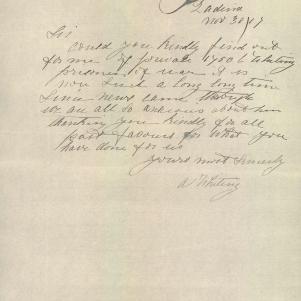 Ladena
Nov 30/17
Sir
Could you kindly find out
for me if private 1750 L Whiting
prisoner of war it is
now such a long long time
since news came through
we are all so anxious about him
thanking you kindly for all
past favours for what you
have done for us
yours most sincerely
A Whiting